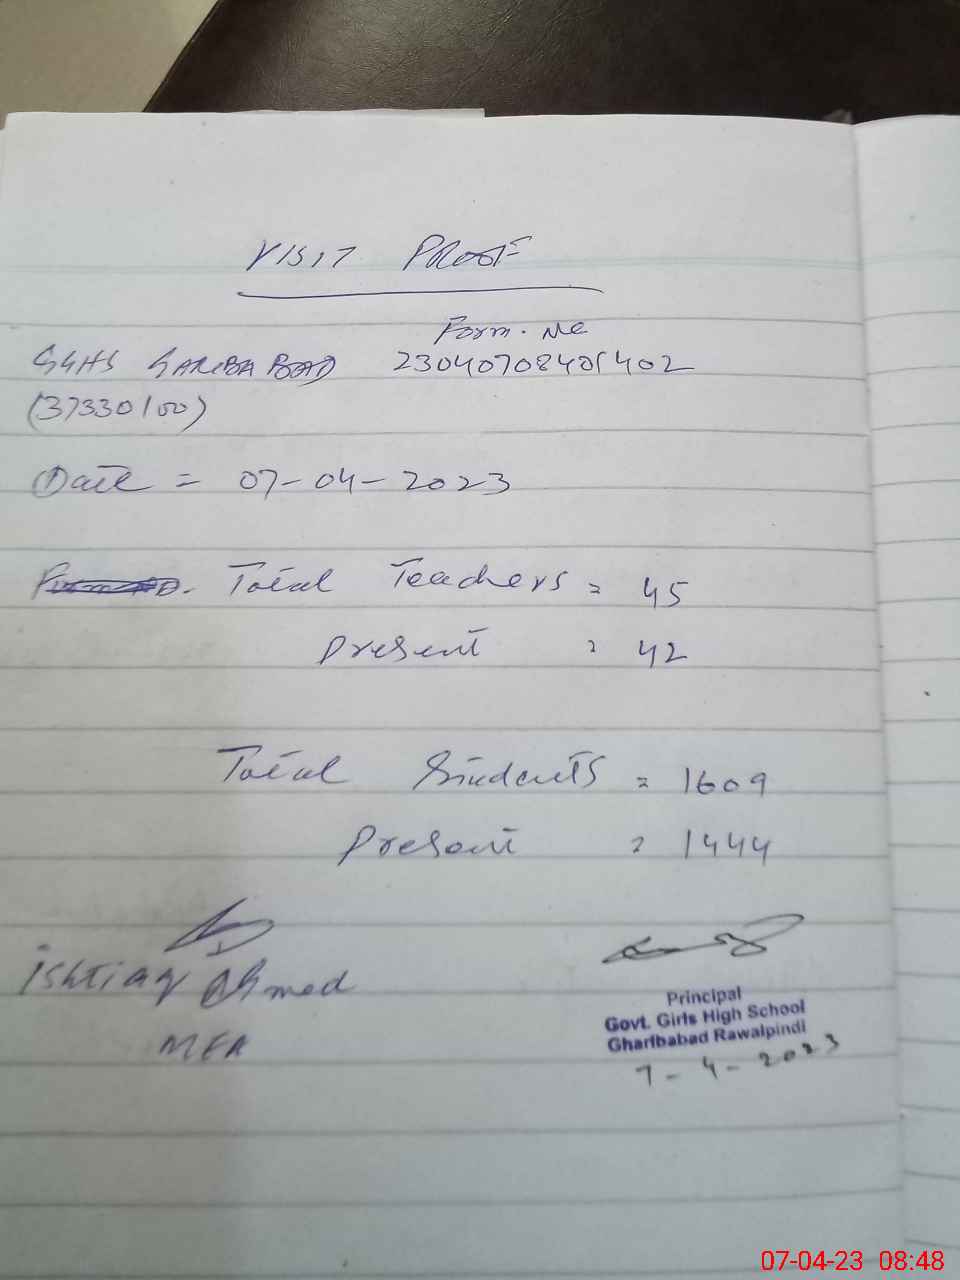 VISIT PROOF
Form. No
GGHS GARIBA BAD 23040708401402
(37330100)
Date = 07-04-2023
Total Teachers = 45
Present = 42
Total Students = 1609
Present = 1444
Ishtiaq Ahmed
MEA
Principal
Govt. Girls High School
Gharibabad Rawalpindi
7-4-2023
07-04-23 08:48